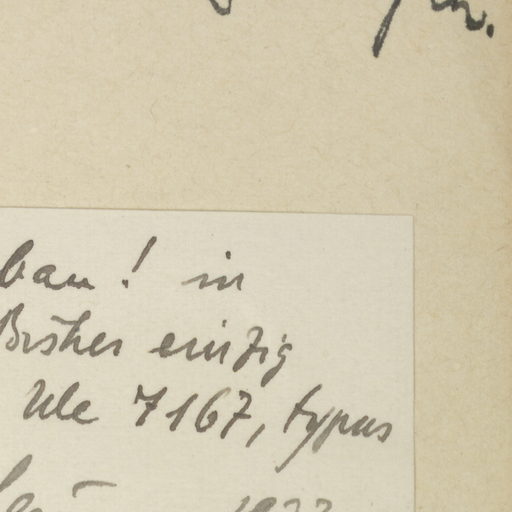 bau! in
Bisher einzig
Ule 7167, typus